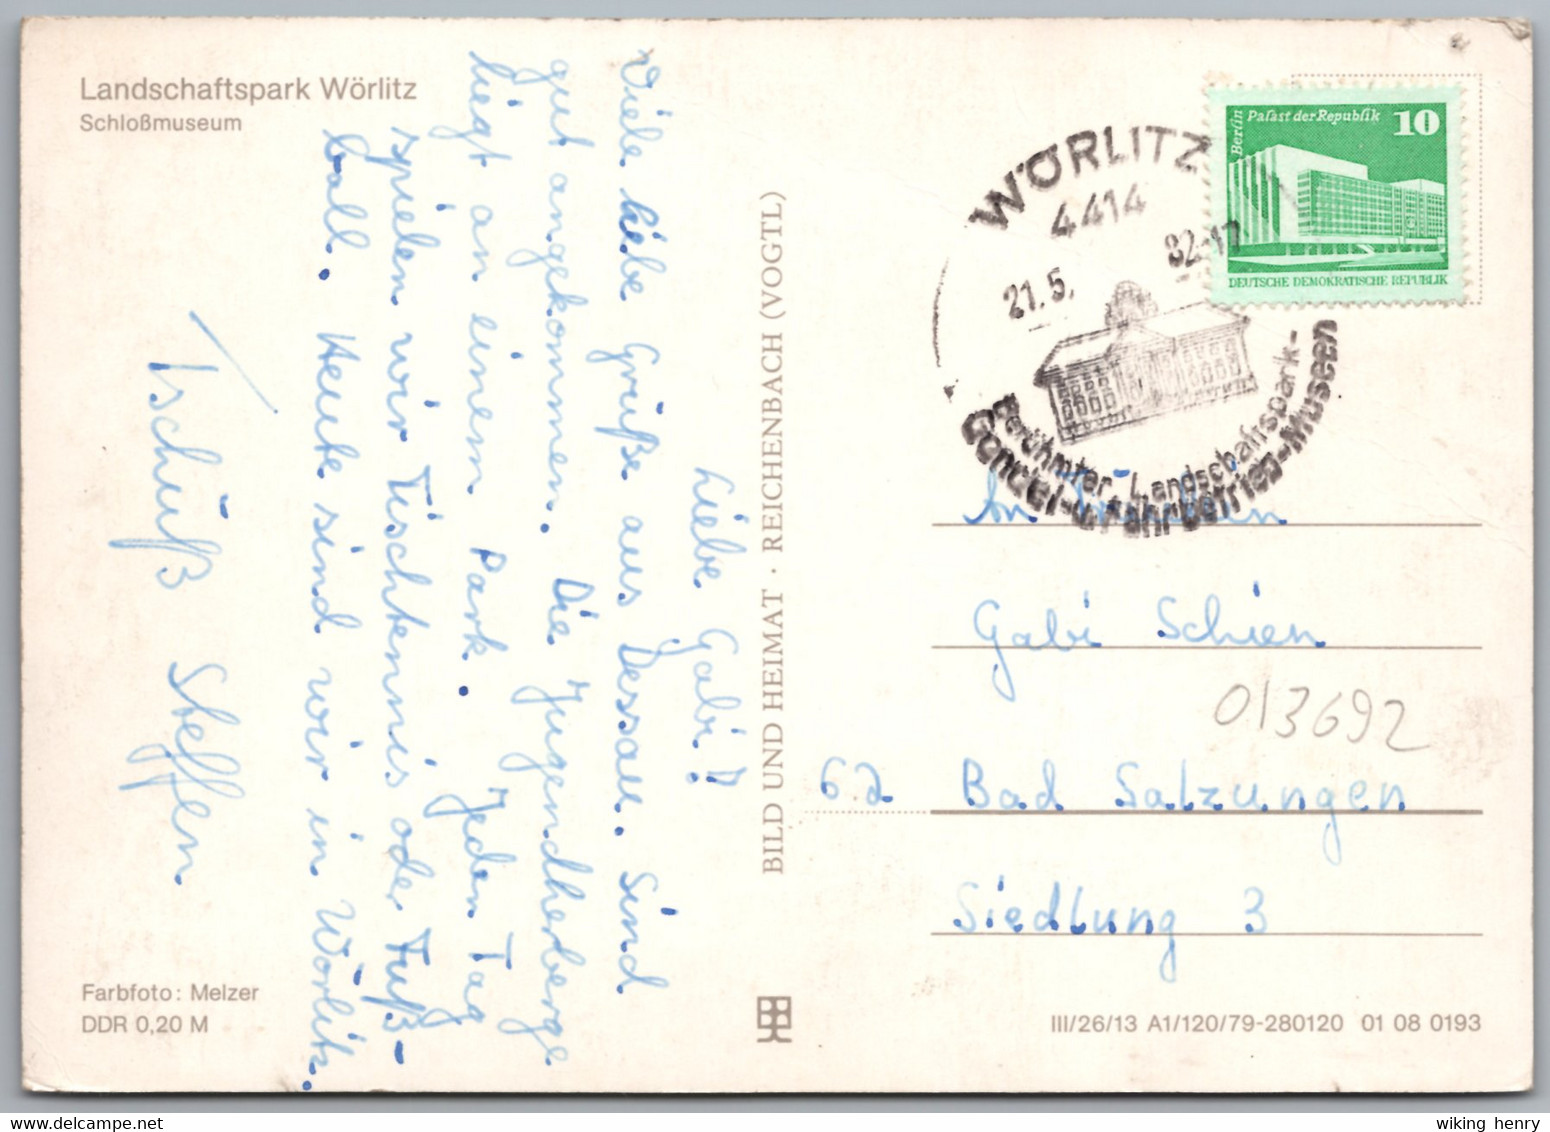 Landschaftspark Wörlitz
Schloßmuseum
Liebe Gabi!
Viele liebe Grüße aus Dessau. Sind
gut angekommen. Die Jugendherberge
liegt an einem Park. Jeden Tag
spielen wir Tischtennis oder Fuß-
ball. Heute sind wir in Wörlitz.
Tschüß Steffen
Farbfoto: Melzer
DDR 0,20 M
BILD UND HEIMAT · REICHENBACH (VOGTL)
WÖRLITZ
4414
21.5. 82-17
Berühmter Landschaftspark-
Gondel-u Fährbetrieb-Museen
Berlin Palast der Republik 10
DEUTSCHE DEMOKRATISCHE REPUBLIK
An
Gabi Schien
013692
62 Bad Salzungen
Siedlung 3
III/26/13 A1/120/79-280120 01 08 0193
wiking henry